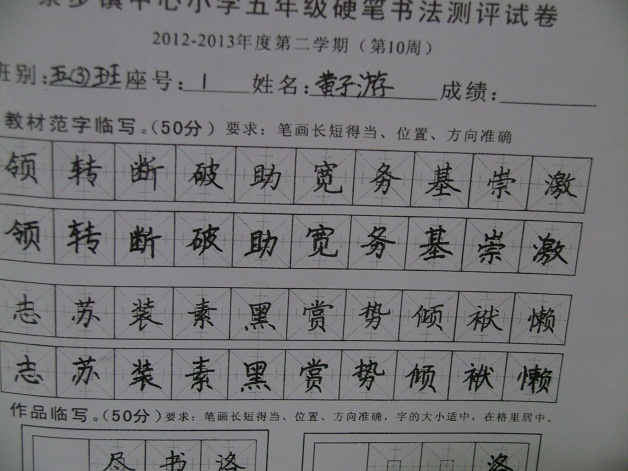 镇中心小学五年级硬笔书法测评试卷
2012-2013年度第二学期（第10周）
班别：五(3)班座号：1 姓名：黄子游 成绩：
教材范字临写。（50分）要求：笔画长短得当、位置、方向准确
领转断破助宽务基崇激
领转断破助宽务基崇激
志苏装素黑赏势倾袱懒
志苏装素黑赏势倾袱懒
作品临写。（50分）要求：笔画长短得当、位置、方向准确，字的大小适中，在格里居中。
书洛 洛